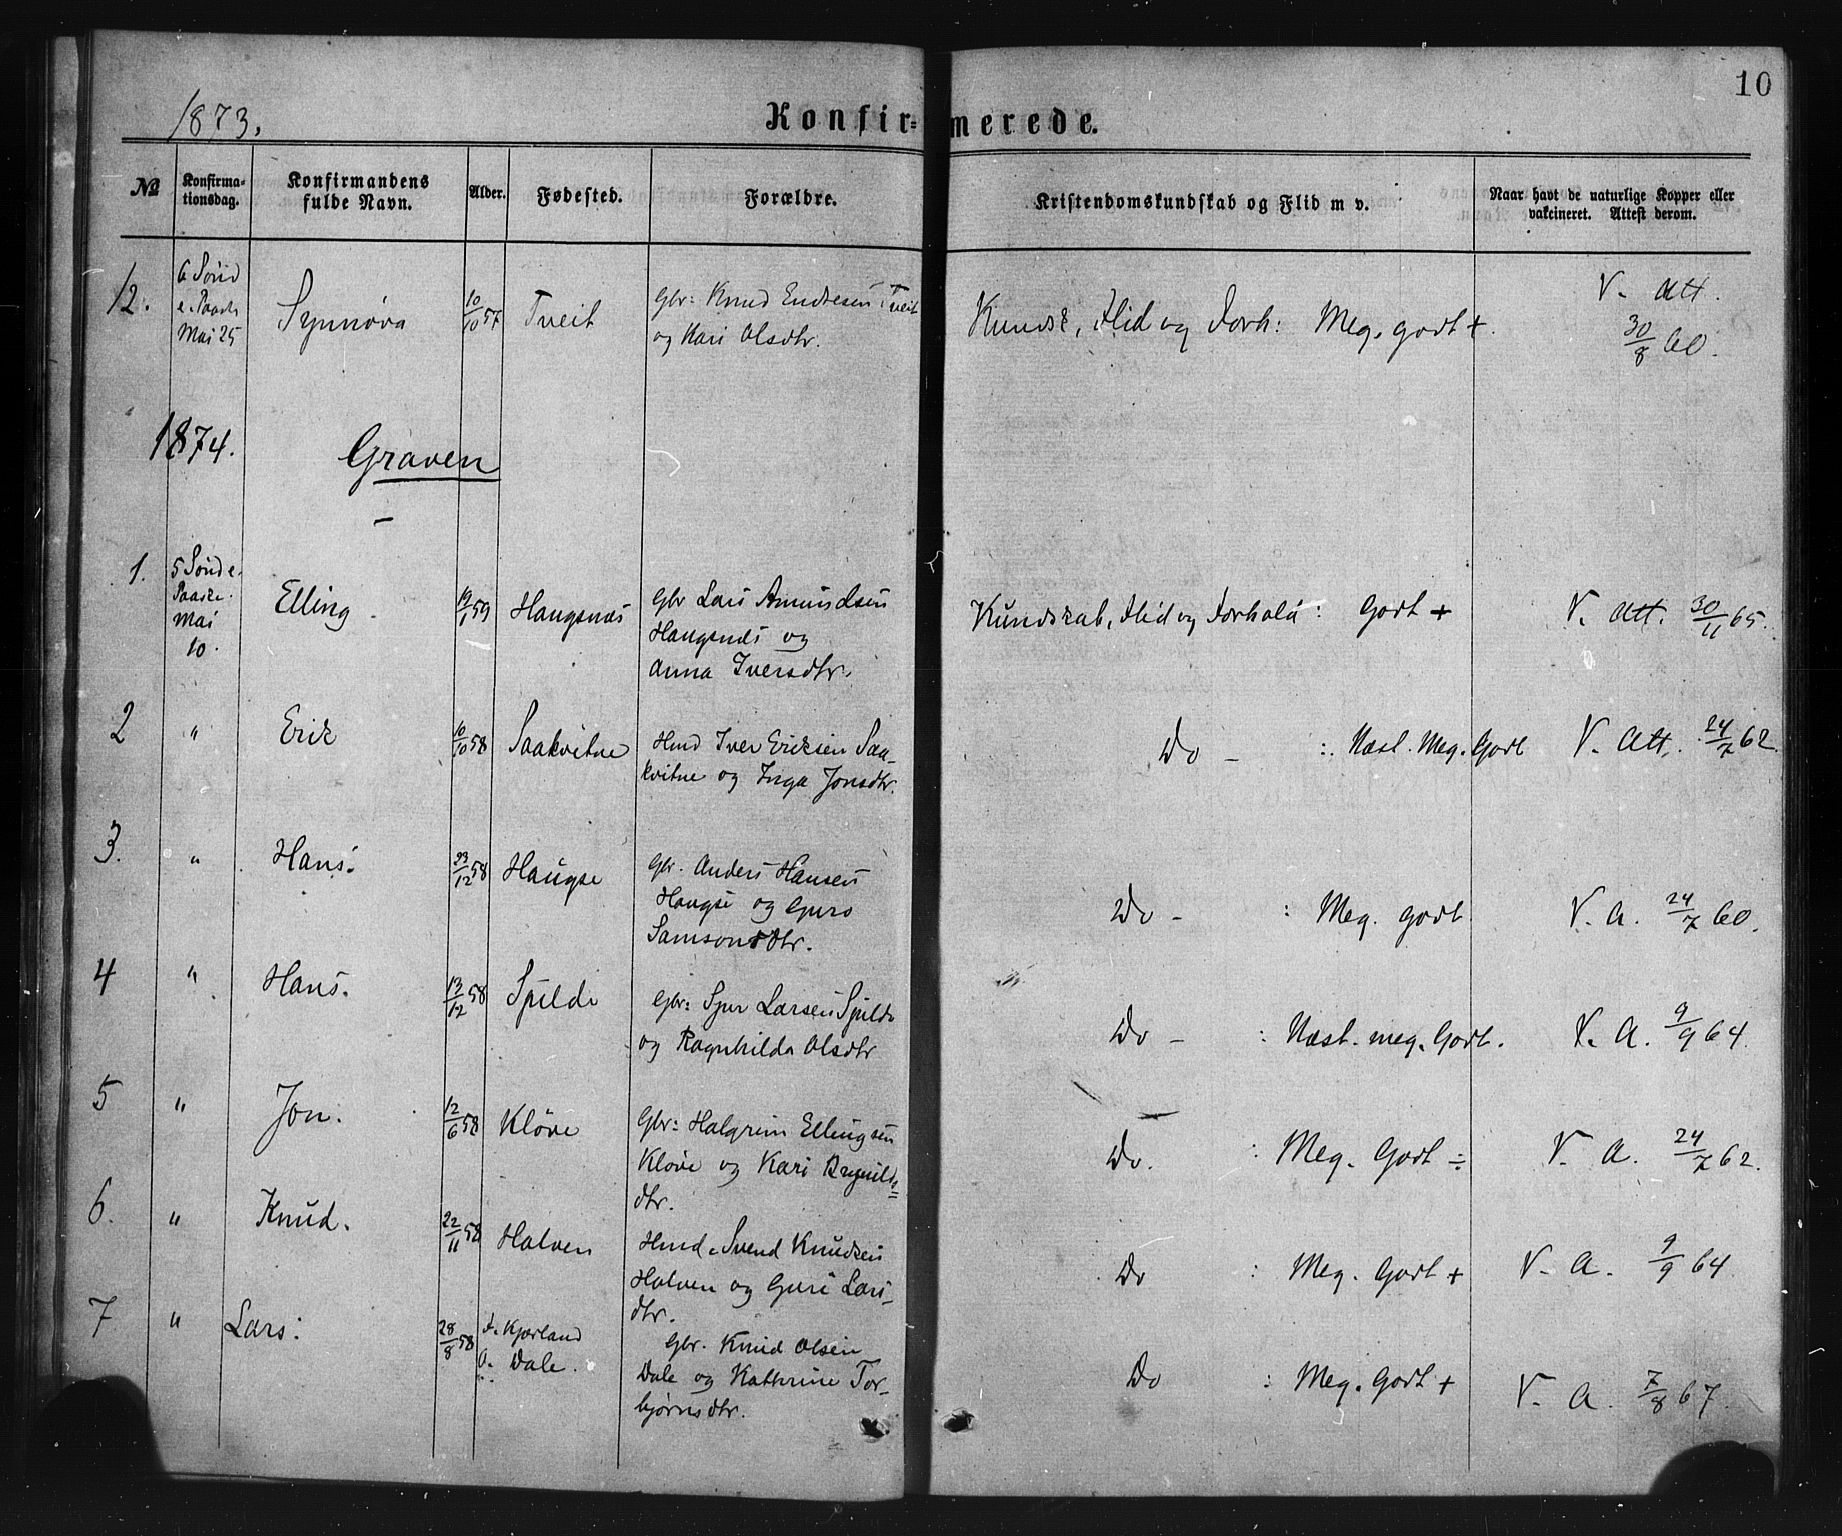 10
1873.
Konfir=merede.
No
Konfirma-
tionsdag.
Konfirmandens
fulde Navn.
Alder.
Fødested.
Forældre.
Kristendomskundskab og Flid m v.
Naar havt de naturlige Kopper eller
vakcineret. Attest derom.
12. 6 Sønd
e. Paaske
Mai 25
Synnøva 10/10 57 Tveit Gbr: Knud Endresen Tveit
og Kari Olsdtr.
Kundsk, Flid og Forh: Meg. godt + V. Att.
30/8 60.
1874.
Graven
1. 5 Sønd e.
Paaske.
Mai
10.
Elling 19/1 59 Haugsnæs Gbr Lars Amundsen
Haugsnæs og
Anna Iversdtr.
Kundskab, Flid og Forhold: Godt + V. Att. 30/11 65.
2 " Erik 10/10 58 Saakvitne Hmd Iver Eriksen Saa-
kvitne og Inga Jonsdtr.
Do - : Næst. Meg. Godt V. Att. 24/7 62.
3. " Hans. 23/12 58 Haugse Gbr. Anders Hansen
Haugse og Guro
Samsonsdtr.
Do - : Meg. godt V. A. 24/7 60.
4 " Hans. 13/12 58 Spilde Gbr: Sjur Larsen Spilde
og Ragnhilda Olsdtr
Do - : Næst. meg. Godt. V. A. 9/9 64.
5 " Jon. 12/6 58 Kløve Gbr: Halgrim Ellingsen
Kløve og Kari Brynilds=
dtr.
Do. : Meg. Godt ÷ V. A. 24/7 62.
6. " Knud. 22/11 58 Halven Hmd. Svend Knudsen
Halven og Guri Lars-
dtr.
Do : Meg. Godt + V. A. 9/9 64.
7 " Lars. 28/8 58 f. Kjærland
O. Dale.
Gbr. Knud Olsen
Dale og Kathrine Tor-
bjørnsdtr.
Do : Meg. Godt + V. A. 7/8 67.